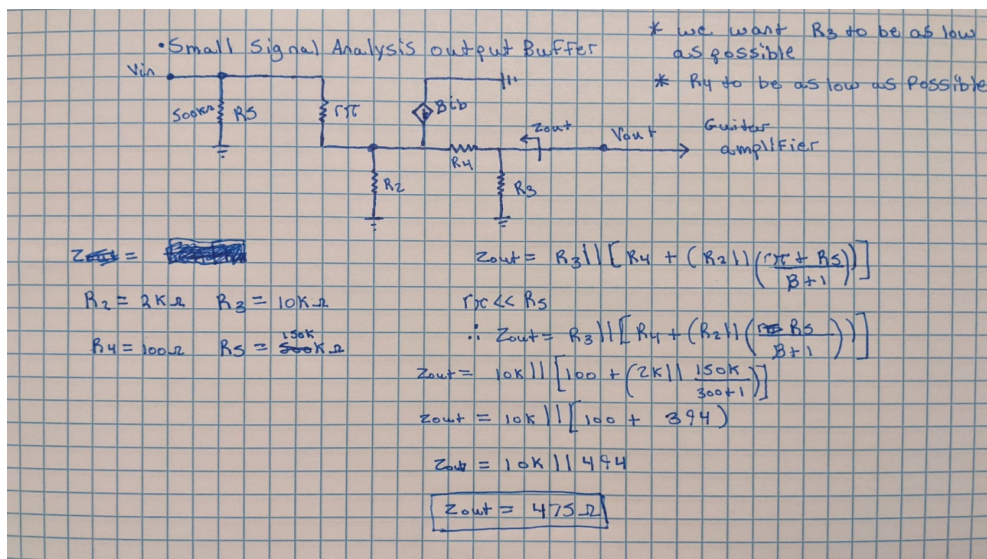 • Small Signal Analysis output Buffer
* we want R3 to be as low
as possible
* R4 to be as low as Possible
Vin
500kΩ R5
rπ
Bib
R2
R4
Zout
R3
Vout
Guitar
amplifier
Zout =
R2 = 2KΩ R3 = 10KΩ
R4 = 100Ω R5 = 500KΩ 150K
Zout = R3 || [R4 + (R2 || (rπ + R5 / B+1))]
rπ << R5
∴ Zout = R3 || [R4 + (R2 || (R5 / B+1))]
Zout = 10K || [100 + (2K || 150K / 300+1)]
Zout = 10K || [100 + 394)
Zout = 10K || 494
Zout = 475Ω